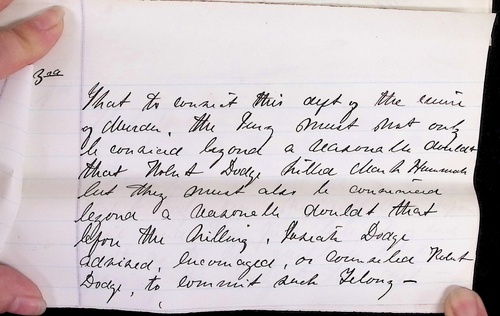 3rd
That to convict this deft of the crime
of Murder, the Jury must not only
be convinced beyond a reasonable doubt
that Robert Dodge killed Mark Hammock
but they must also be convinced
beyond a reasonable doubt that
before the killing, Dodge
advised, encouraged, or counseled Robert
Dodge, to commit such Felony —